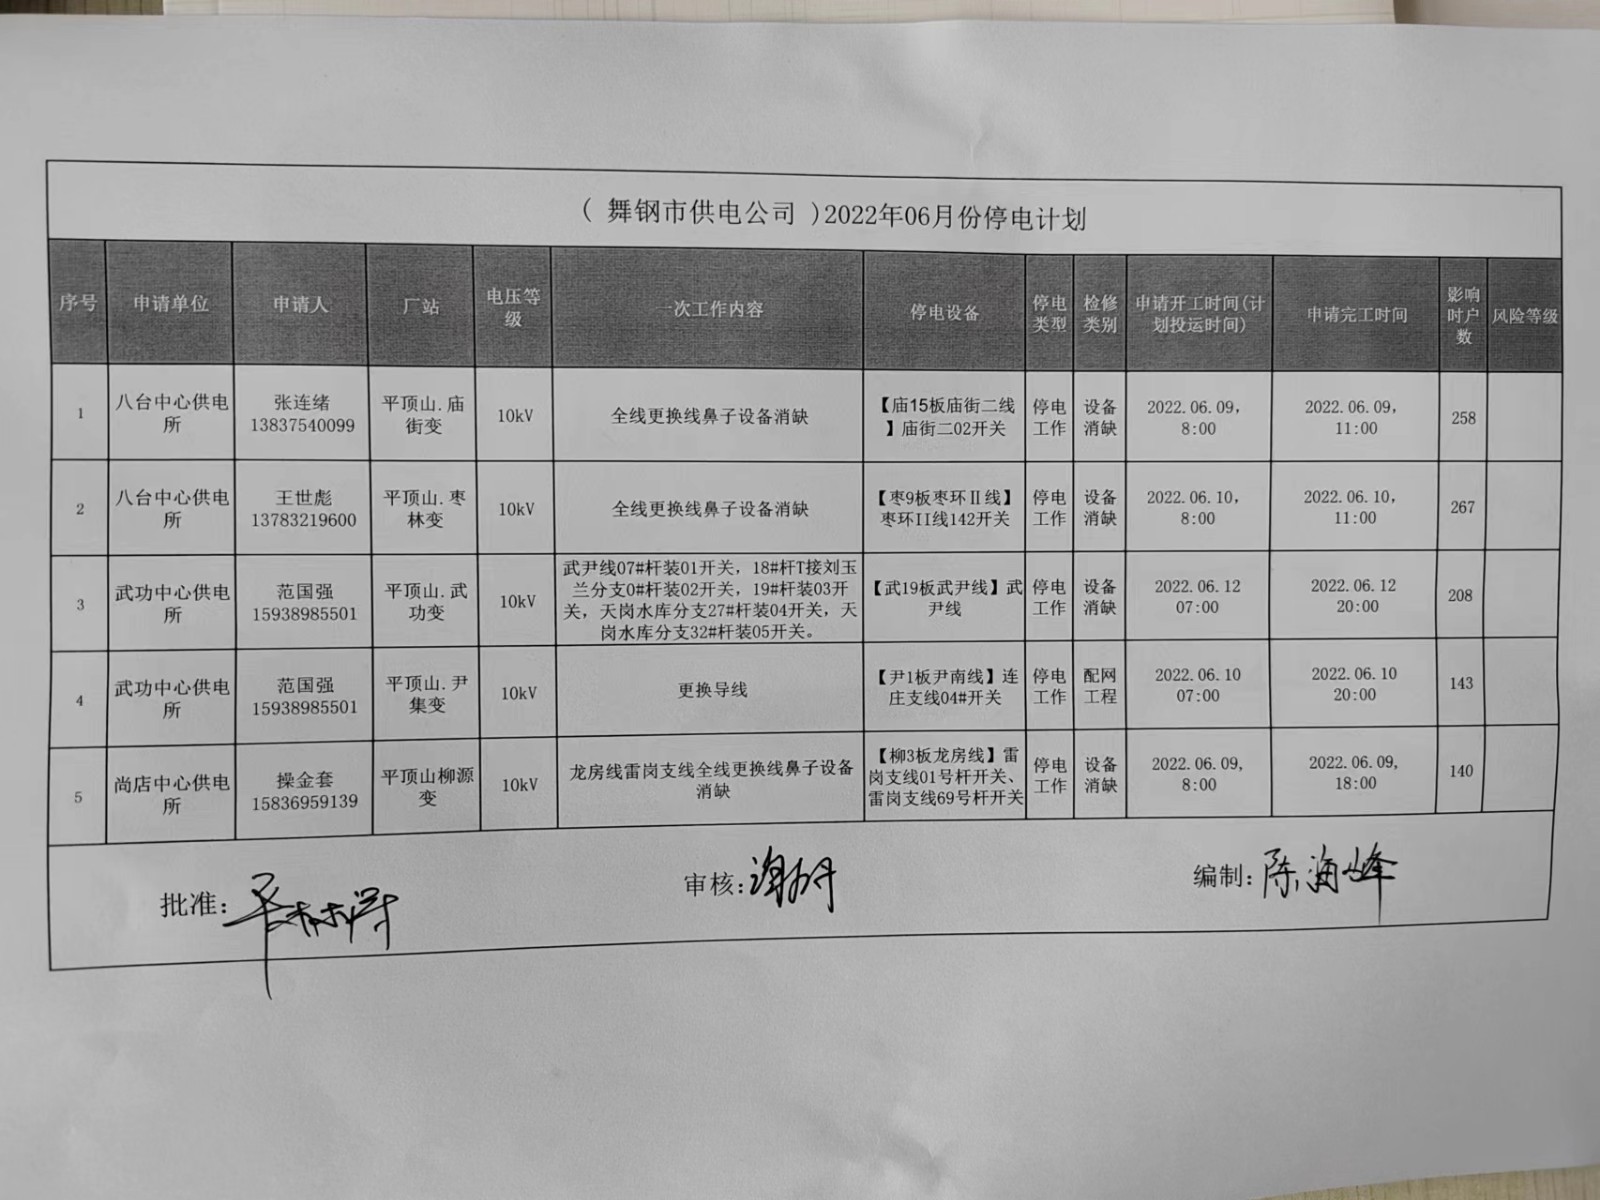 ( 舞钢市供电公司 )2022年06月份停电计划
序号 申请单位 申请人 厂站 电压等级 一次工作内容 停电设备 停电类型 检修类别 申请开工时间(计划投运时间) 申请完工时间 影响时户数 风险等级
1 八台中心供电所 张连绪 13837540099 平顶山.庙街变 10kV 全线更换线鼻子设备消缺 【庙15板庙街二线】庙街二02开关 停电工作 设备消缺 2022.06.09, 8:00 2022.06.09, 11:00 258
2 八台中心供电所 王世彪 13783219600 平顶山.枣林变 10kV 全线更换线鼻子设备消缺 【枣9板枣环Ⅱ线】枣环II线142开关 停电工作 设备消缺 2022.06.10, 8:00 2022.06.10, 11:00 267
3 武功中心供电所 范国强 15938985501 平顶山.武功变 10kV 武尹线07#杆装01开关，18#杆T接刘玉兰分支0#杆装02开关，19#杆装03开关，天岗水库分支27#杆装04开关，天岗水库分支32#杆装05开关。 【武19板武尹线】武尹线 停电工作 设备消缺 2022.06.12 07:00 2022.06.12 20:00 208
4 武功中心供电所 范国强 15938985501 平顶山.尹集变 10kV 更换导线 【尹1板尹南线】连庄支线04#开关 停电工作 配网工程 2022.06.10 07:00 2022.06.10 20:00 143
5 尚店中心供电所 操金套 15836959139 平顶山柳源变 10kV 龙房线雷岗支线全线更换线鼻子设备消缺 【柳3板龙房线】雷岗支线01号杆开关、雷岗支线69号杆开关 停电工作 设备消缺 2022.06.09, 8:00 2022.06.09, 18:00 140
批准： 审核： 编制：陈海峰